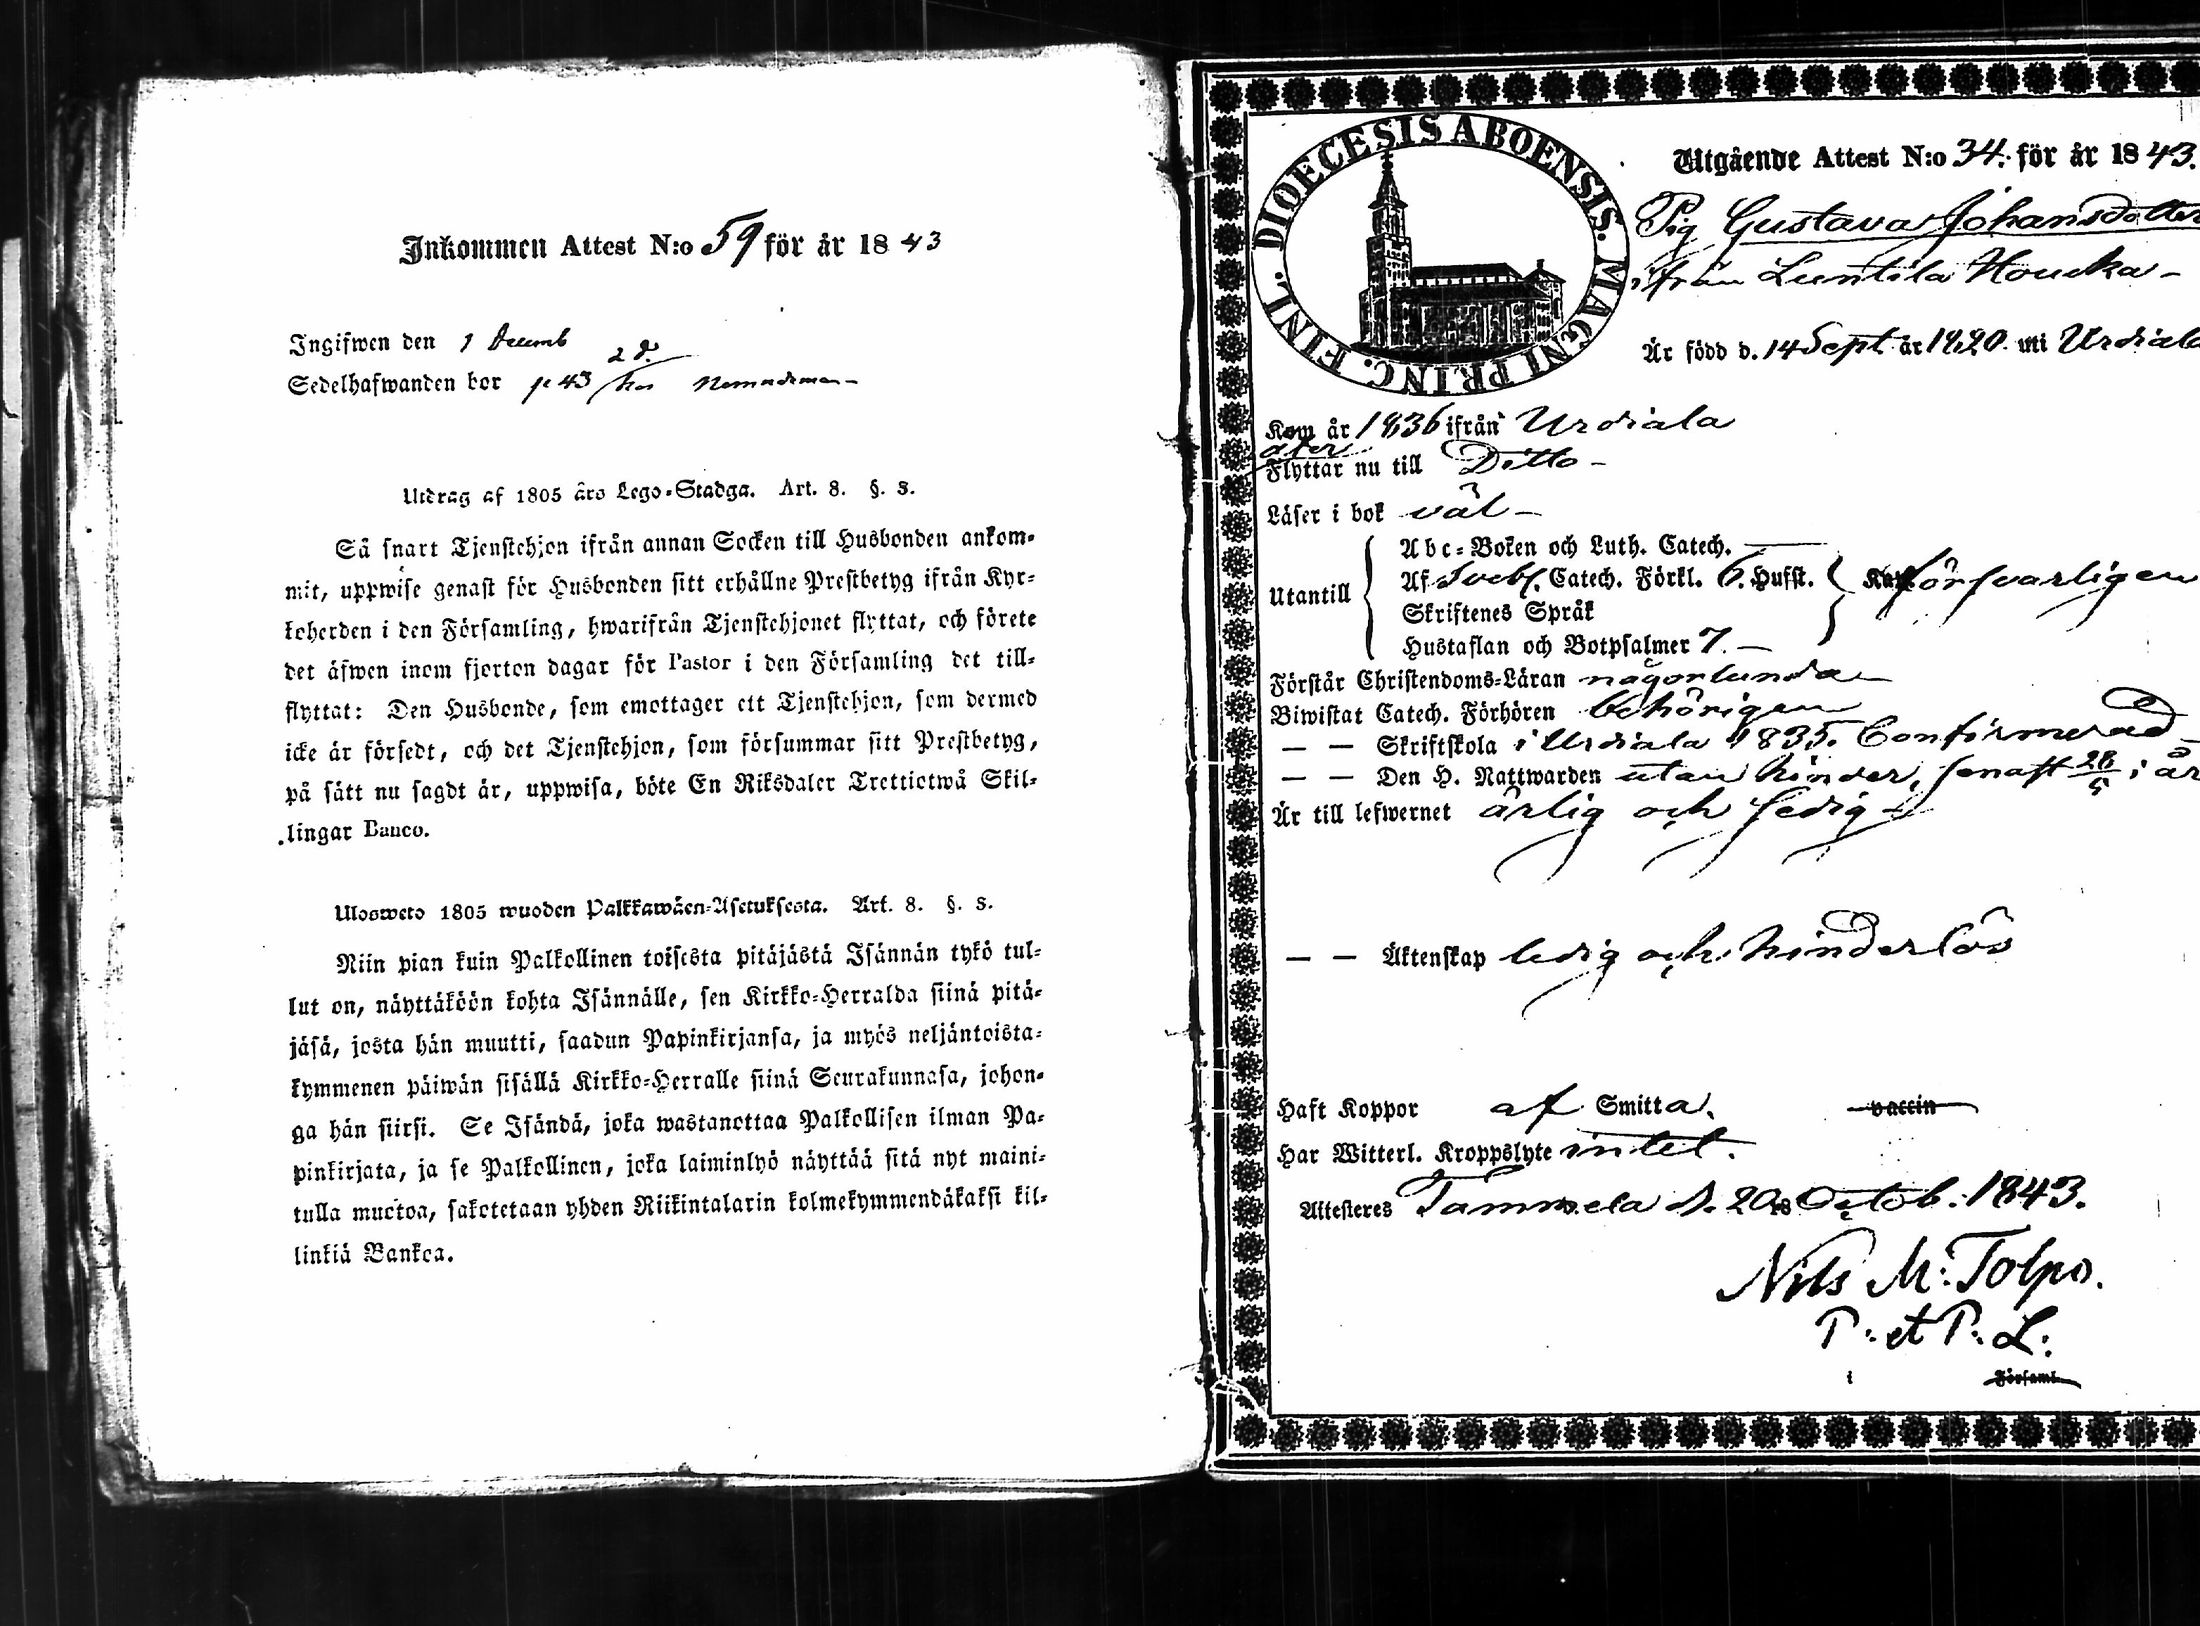 Inkommen Attest N:o 59 för år 1843
Ingifwen den 1 Decemb
2 d.
Sedelhafwanden bor p 43 hos
Utdrag af 1805 års Lego-Stadga. Art. 8. §. 3.
Så snart Tjenstehjon ifrån annan Socken till Husbonden ankom-
mit, uppwise genast för Husbonden sitt erhållne Prestbetyg ifrån Kyr-
koherden i den Församling, hwarifrån Tjenstehjonet flyttat, och förete
det äfwen inom fjorton dagar för Pastor i den Församling det till-
flyttat: Den Husbonde, som emottager ett Tjenstehjon, som dermed
icke är försedt, och det Tjenstehjon, som försummar sitt Prestbetyg,
på sätt nu sagdt är, uppwisa, böte En Riksdaler Trettiotwå Skil-
lingar Banco.
Ulosweto 1805 wuoden Palkkawäen-Asetuksesta. Art. 8. §. 3.
Niin pian kuin Palkollinen toisesta pitäjästä Isännän tykö tul-
lut on, näyttäköön kohta Isännälle, sen Kirkko-Herralda siinä pitä-
jäsä, josta hän muutti, saadun Papinkirjansa, ja myös neljäntoista-
kymmenen päiwän sisällä Kirkko-Herralle siinä Seurakunnasa, johon-
ga hän siirsi. Se Isändä, joka wastanottaa Palkollisen ilman Pa-
pinkirjata, ja se Palkollinen, joka laiminlyö näyttää sitä nyt maini-
tulla muotoa, sakotetaan yhden Riikintalarin kolmekymmendäkaksi kil-
linkiä Bankoa.
DIOECESIS ABOENSIS. MAGNI PRINC. FINL.
Utgående Attest N:o 34. för år 1843.
Pig Gustava Johansdotter
ifrån Luntila Houcka
Är född d. 14 Sept år 1820. uti Urdiala
Kom år 1836 ifrån Urdiala
åter
Flyttar nu till Ditto
Läser i bok väl
Abc-Boken och Luth. Catech.
Utantill Af Svebl. Catech. Förkl. 6. Hufst. försvarligen
Skriftenes Språk
Hustaflan och Botpsalmer 7.
Förstår Christendoms-Läran någorlunda
Biwistat Catech. Förhören behörigen
— — Skriftskola i Urdiala 1835. Confirmerad
— — Den H. Nattwarden utan hinder, senast 28/5 i år
Är till lefwernet ärlig och sedig
— — Äktenskap ledig och hinderlös
Haft Koppor af Smitta. vaccin
Har Witterl. Kroppslyte intet.
Attesteres Tammela d. 20 Octob. 1843.
Nils M: Tolpo.
P: et P: L:
i Församl.